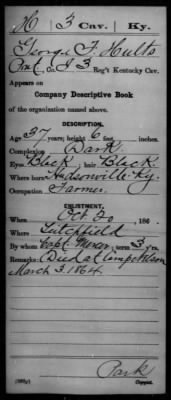 H 3 Cav. Ky.
George F. Hults
Pvt, Co. I 3 Reg't Kentucky Cav.
Appears on
Company Descriptive Book
of the organization named above.
DESCRIPTION.
Age 37 years; height 6 feet inches.
Complexion Dark
Eyes Black; hair Black
Where born Hudsonville Ky.
Occupation Farmer
ENLISTMENT.
When Oct 20, 186 .
Where Litchfield
By whom Capt. ; term 3 y'rs.
Remarks: Died at Camp Nelson
March 3. 1864
Park
Copyist.